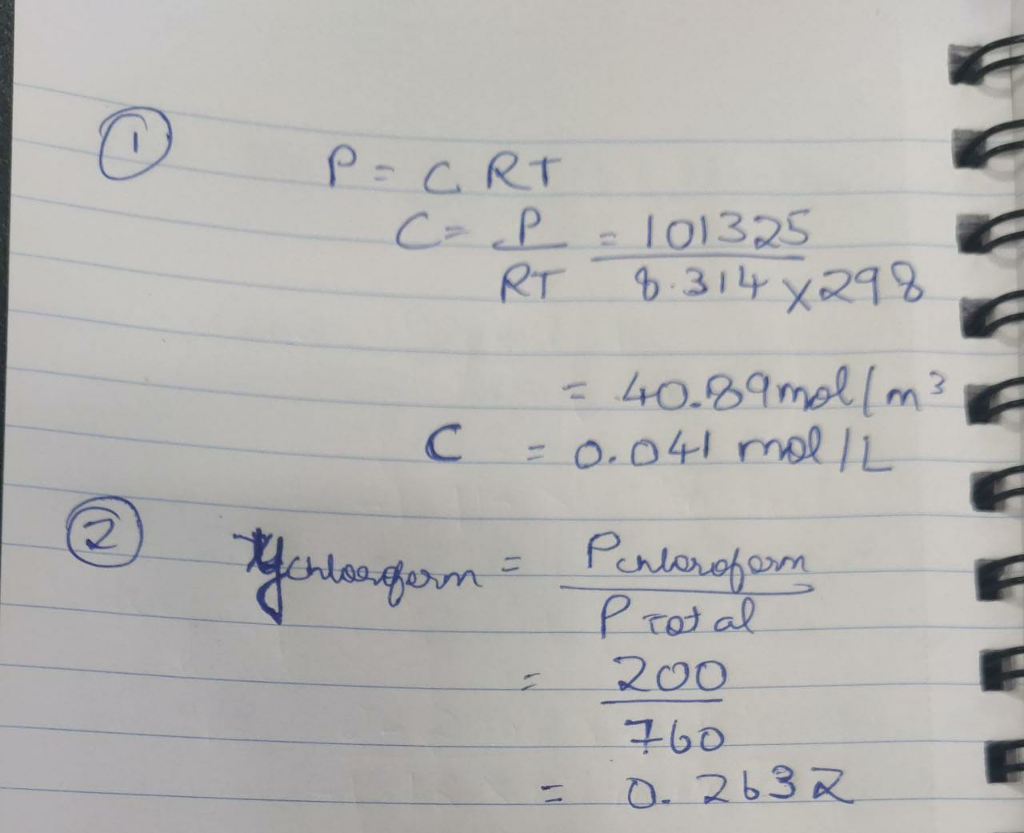 ①
P = C RT
C = P/RT = 101325/8.314 × 298
= 40.89 mol/m³
C = 0.041 mol/L
②
ychloroform = Pchloroform/PTotal
= 200/760
= 0.2632